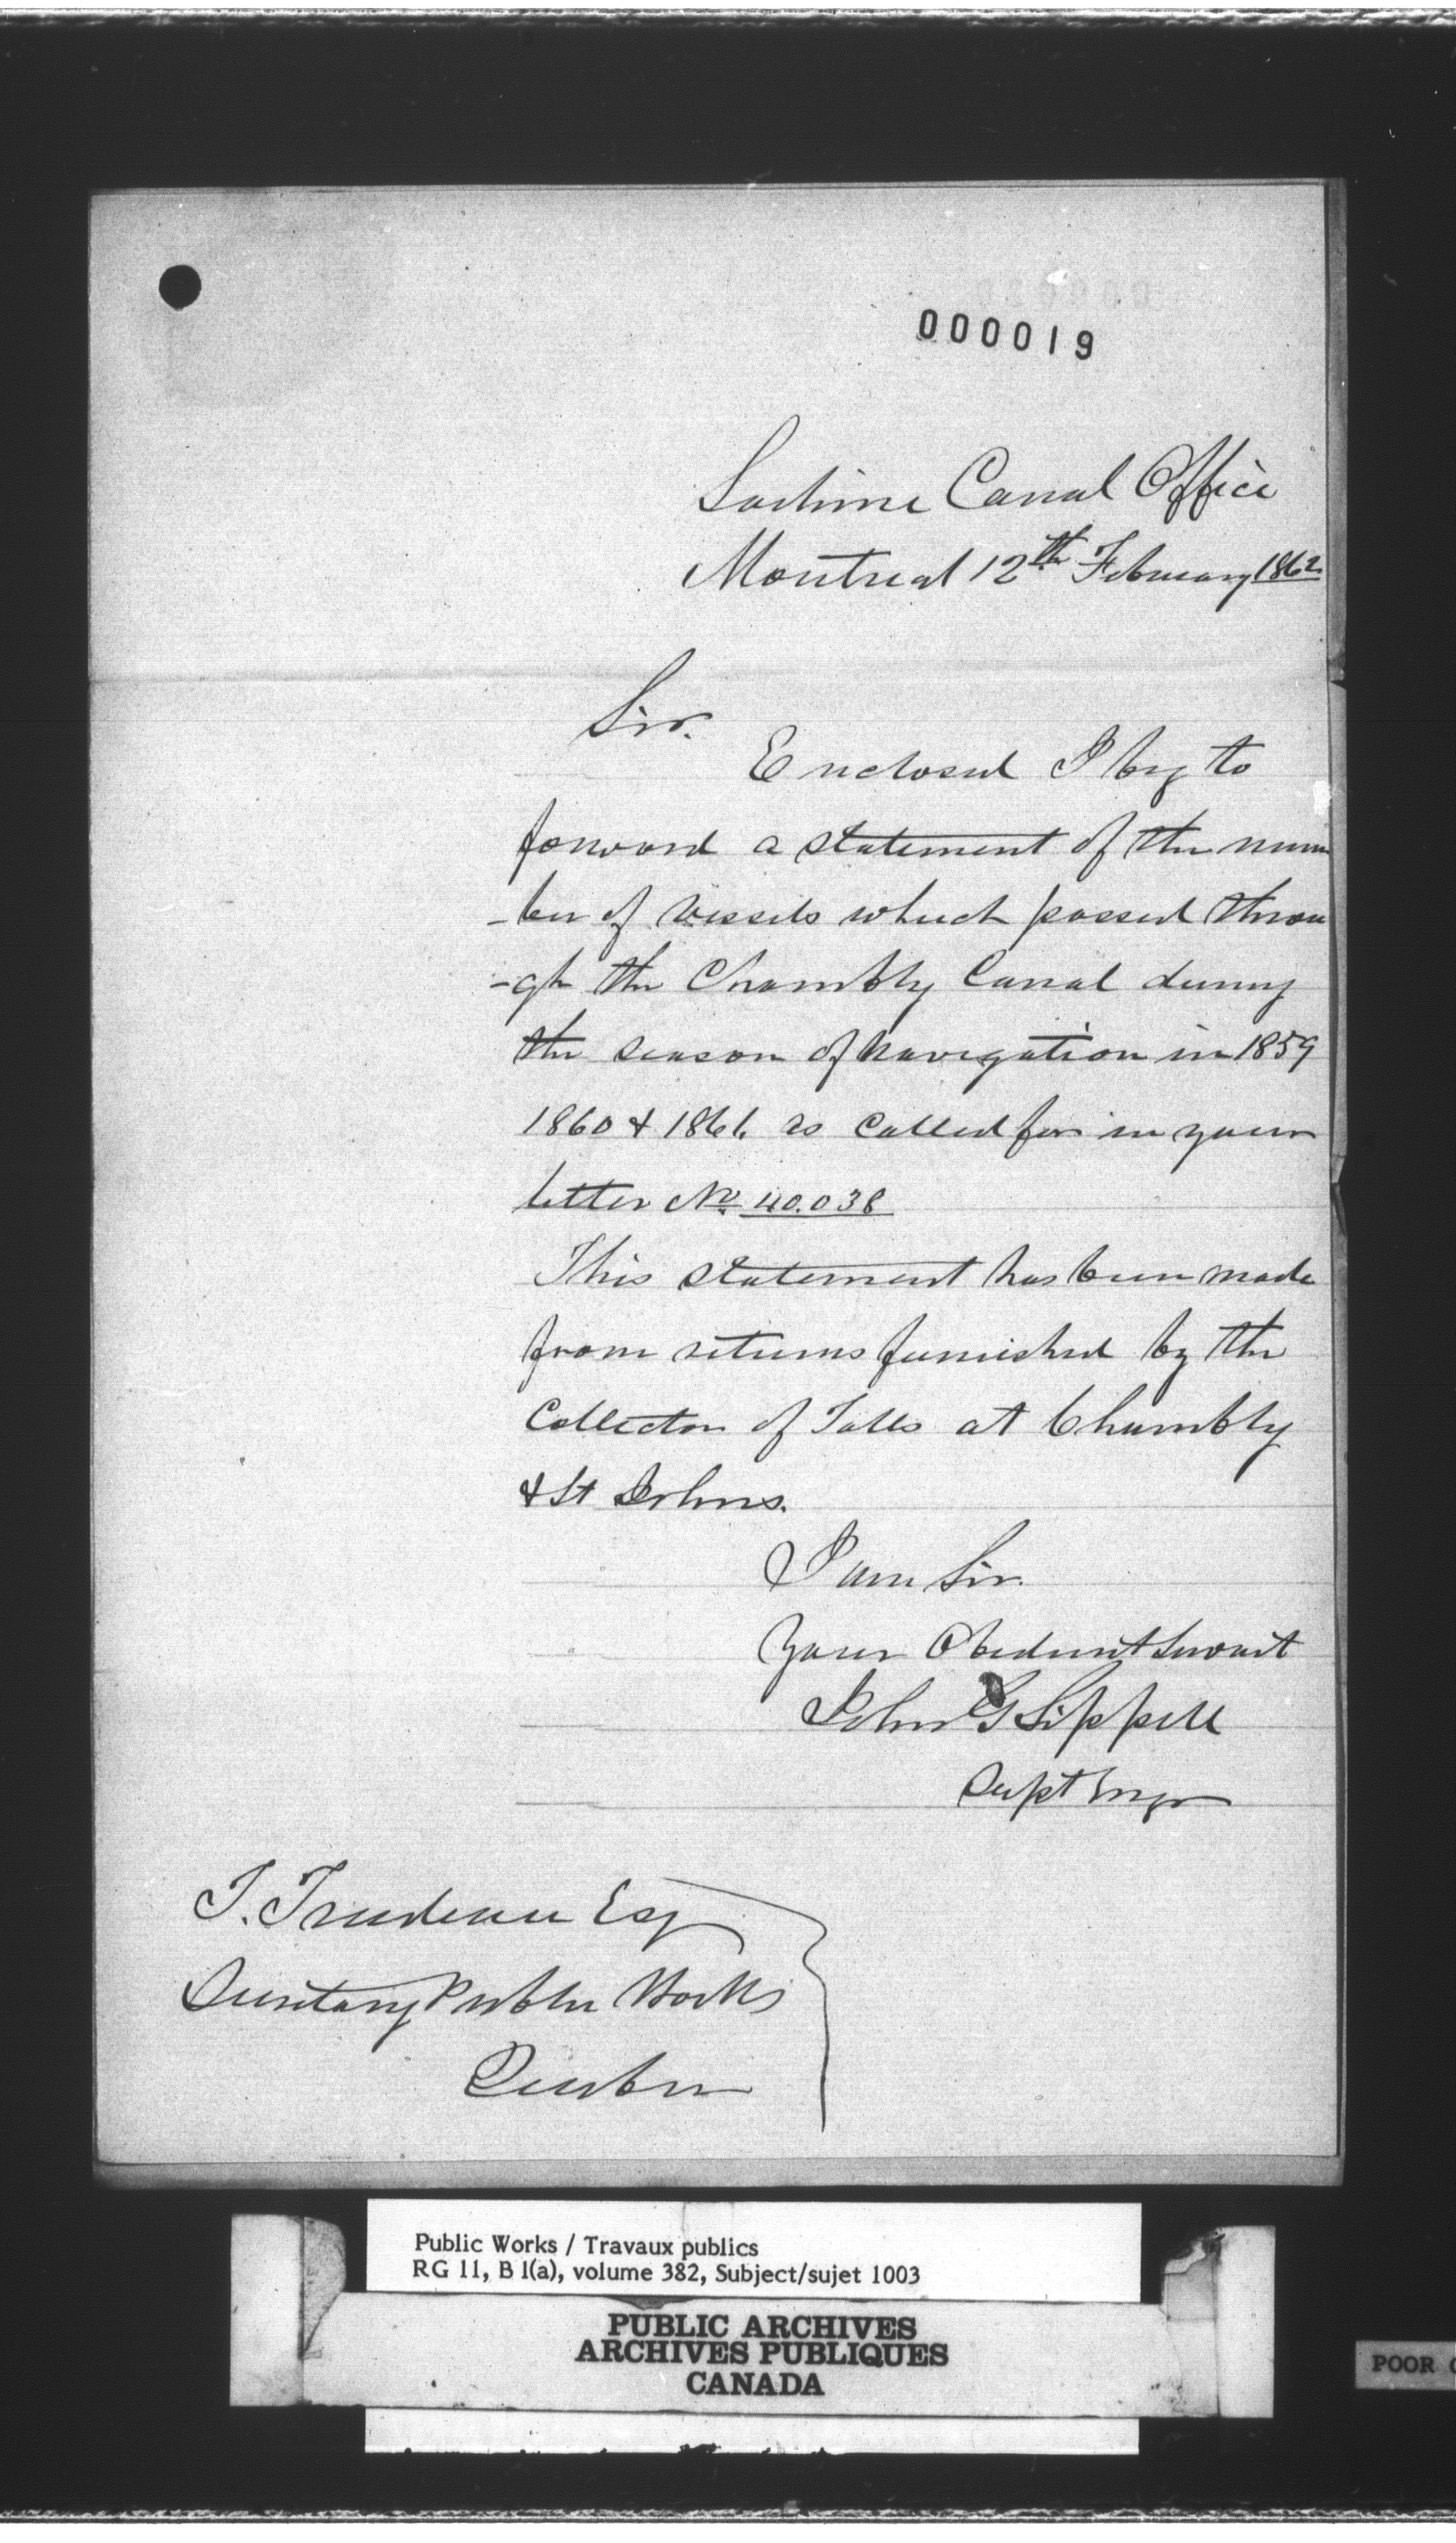 000019
Lachine Canal Office
Montreal 12th February 1862
Sir.
Enclosed I beg to
forward a statement of the num
-ber of Vessels which passed throu
-gh the Chambly Canal during
the season of Navigation in 1859
1860 & 1861. as called for in your
letter No. 40.038
This statement has been made
from returns furnished by the
Collector of Tolls at Chambly
& St Johns.
I am Sir.
Your Obedient Servant
John G Sippell
Supt Engr
T. Trudeau Esq
Secretary Public Works
Quebec
Public Works / Travaux publics
RG 11, B 1(a), volume 382, Subject/sujet 1003
PUBLIC ARCHIVES
ARCHIVES PUBLIQUES
CANADA
POOR